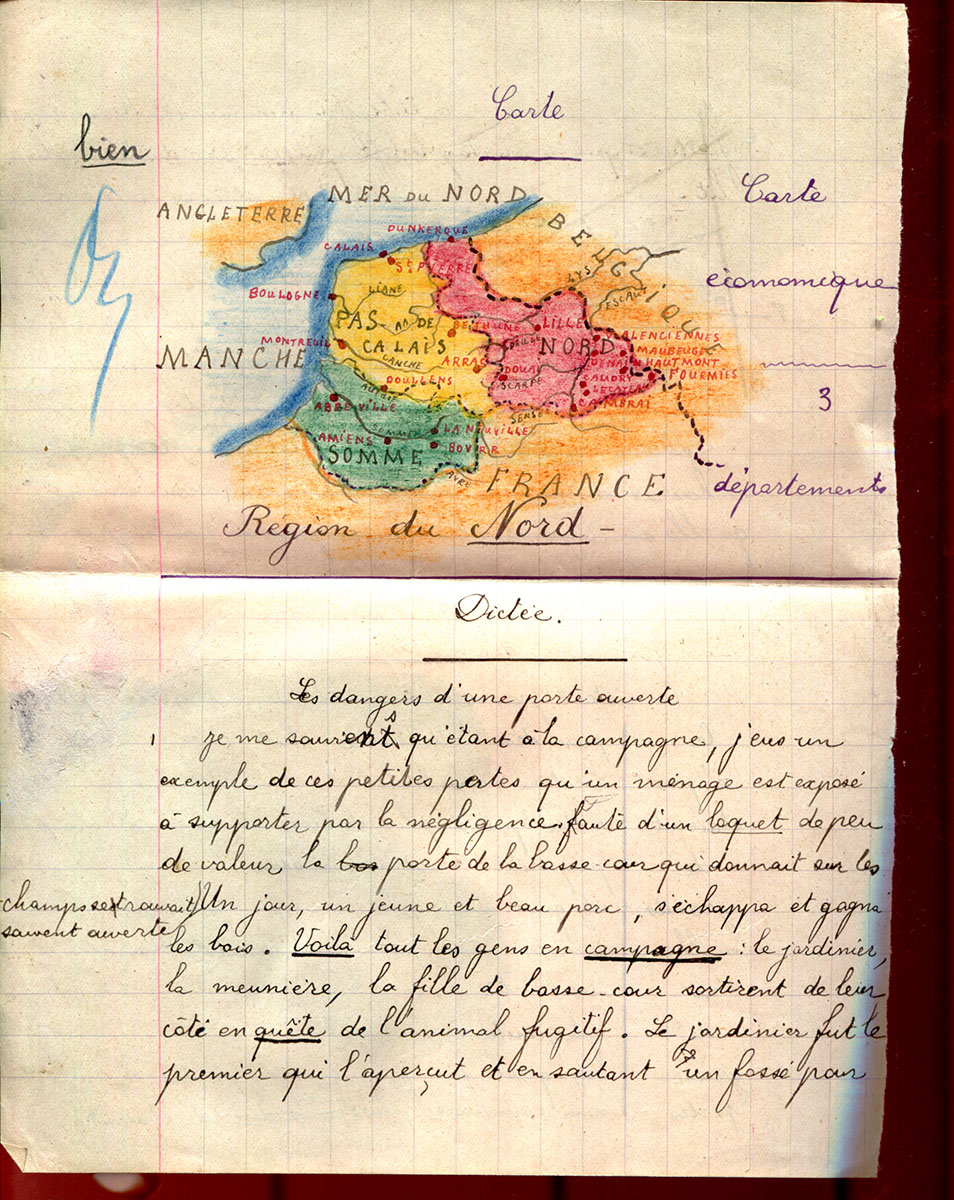 Carte
bien
MER DU NORD
ANGLETERRE
Carte
DUNKERQUE
BELGIQUE
CALAIS
St PIERRE
LYS
économicque
BOULOGNE
LIANE
ESCAUT
PAS-DE
AA
BETHUNE
LILLE
VALENCIENNES
MONTREUIL
CALAIS
NORD
MAUBEUGE
MANCHE
CANCHE
ARRAS
DOUAI
HAUTMONT
FOURMIES
DOULLENS
SCARPE
CAUDRY
3
AUTHIE
LECATEAU
ABBEVILLE
CAMBRAI
SENSEE
SOMME
LANEUVILLE
AMIENS
BOVES
SOMME
AVRE
FRANCE
départements
Région du Nord -
Dictée.
Les dangers d'une porte ouverte
1 Je me souviens qu'étant à la campagne, j'eus un
exemple de ces petites pertes qu'un ménage est exposé
à supporter par la négligence. faute d'un loquet de peu
de valeur la bas porte de la basse cour qui donnait sur les
champs se trouvait) Un jour, un jeune et beau porc, s'échappa et gagna
souvent ouverte
les bois. Voilà tout les gens en campagne : le jardinier,
la meunière, la fille de basse-cour sortirent de leur
côté en quête de l'animal fugitif. Le jardinier fut le
premier qui l'aperçut et en sautant un fossé pour